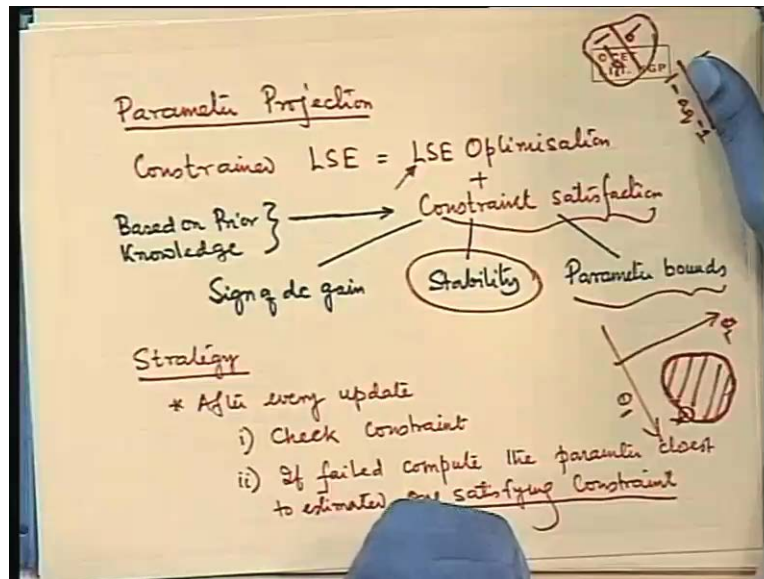 Parameter Projection
Constrained LSE = LSE Optimisation
+
Constraint satisfaction
Based on Prior
Knowledge
Sign of dc gain
Stability
Parameter bounds
Strategy
* After every update
i) Check constraint
ii) If failed compute the parameter closest
to estimated one satisfying constraint